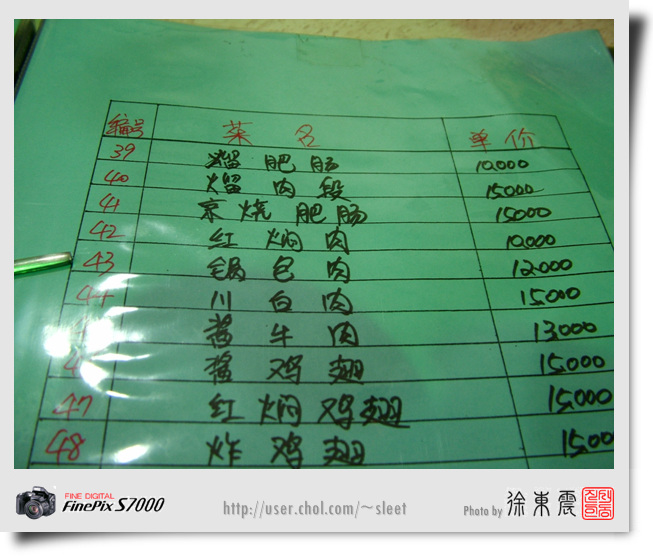 编号 菜名 单价
39 溜肥肠 10,000
40 熘肉段 15,000
41 京烧肥肠 15,000
42 红焖肉 10,000
43 锅包肉 12,000
44 川白肉 15,000
酱牛肉 13,000
酱鸡翅 15,000
47 红焖鸡翅 15,000
48 炸鸡翅 15,00
FINE DIGITAL
FinePix S7000
http://user.chol.com/~sleet
Photo by 徐東震